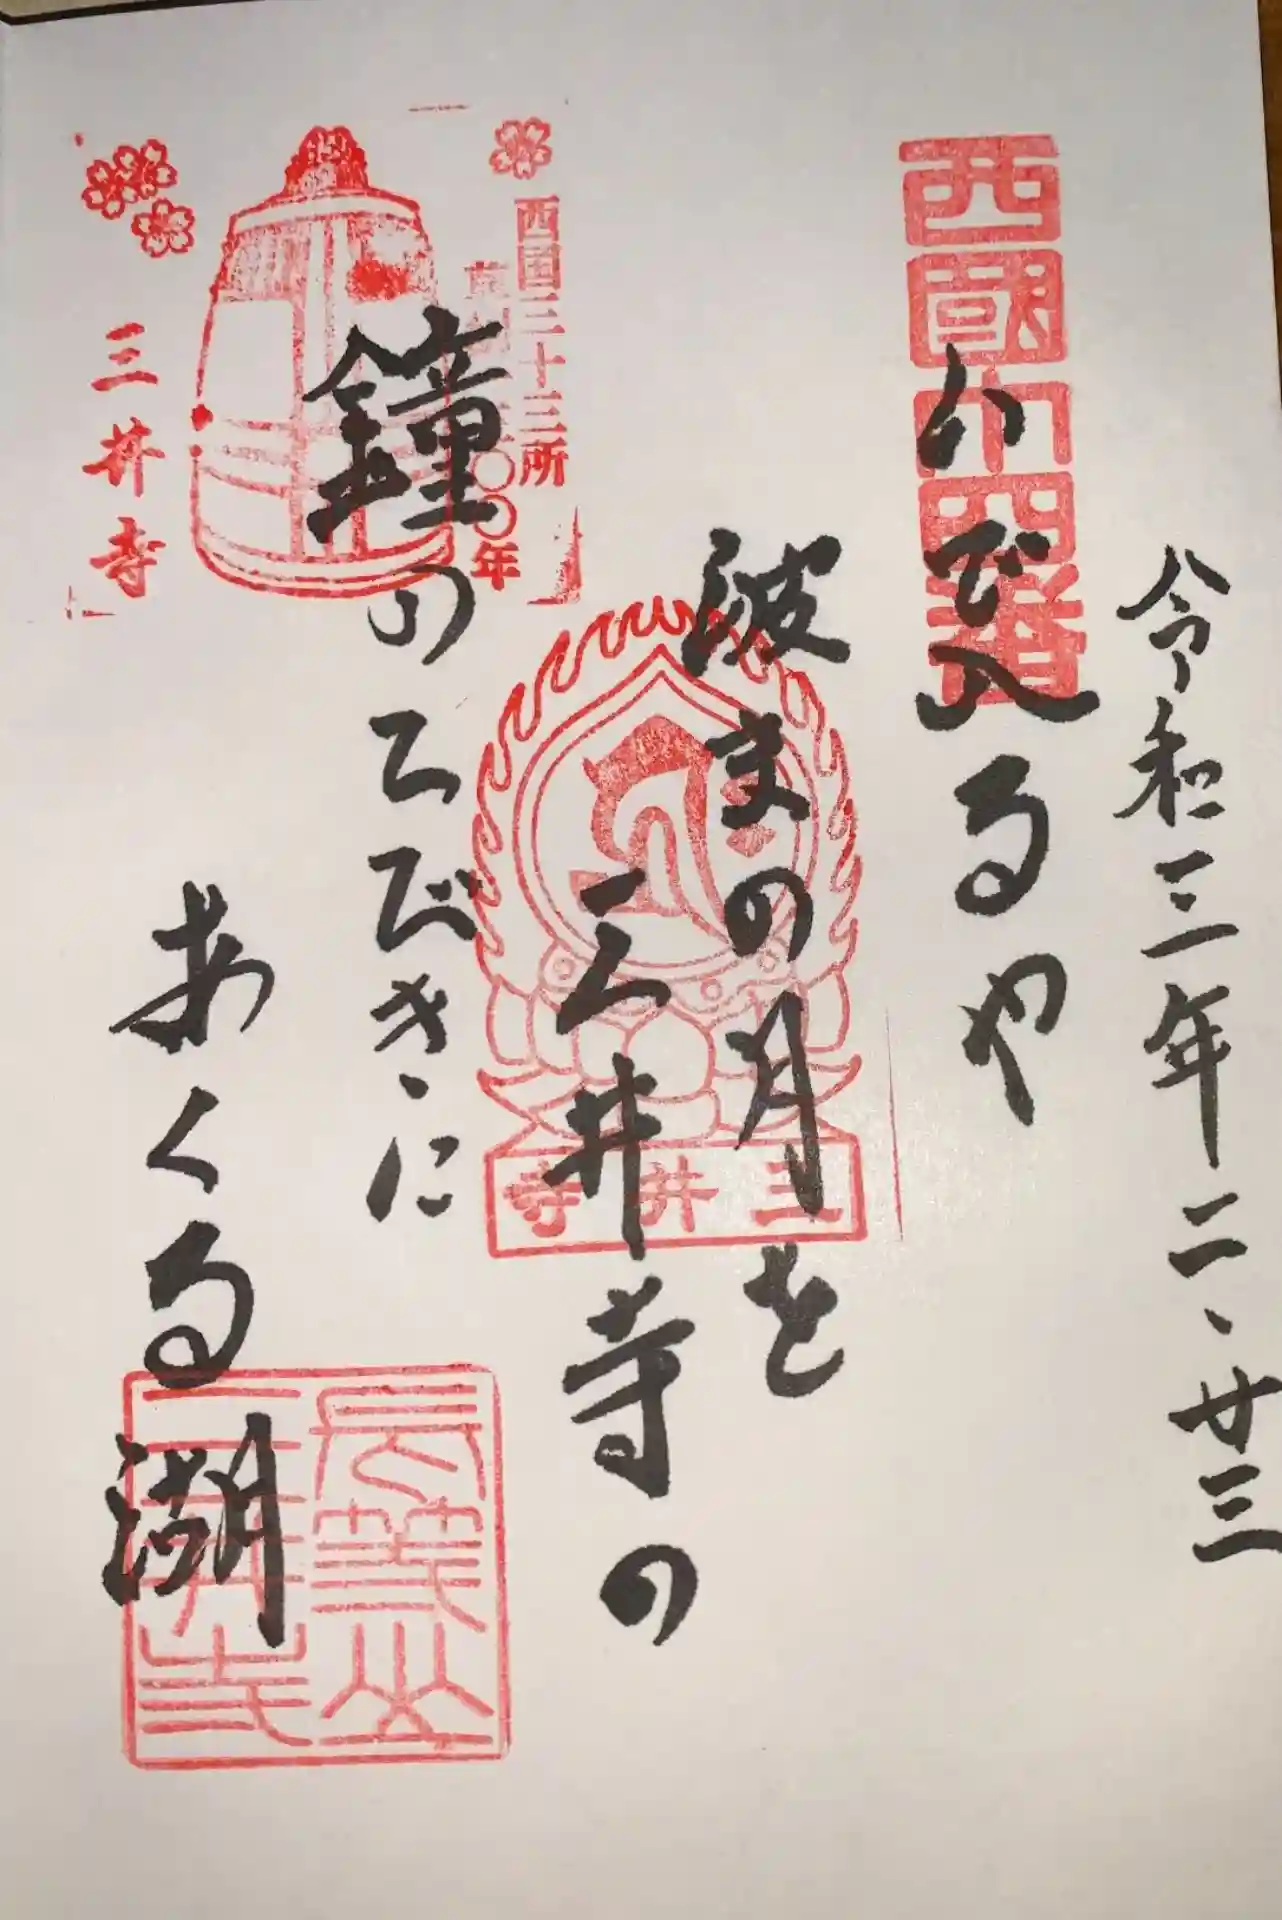 令和三年二、廿三
西國十四番
いで入るや
波まの月を
三井寺の
鐘のひびきに
あくる湖
西国三十三所
〇〇年
三井寺
三井寺
長等山
三井寺